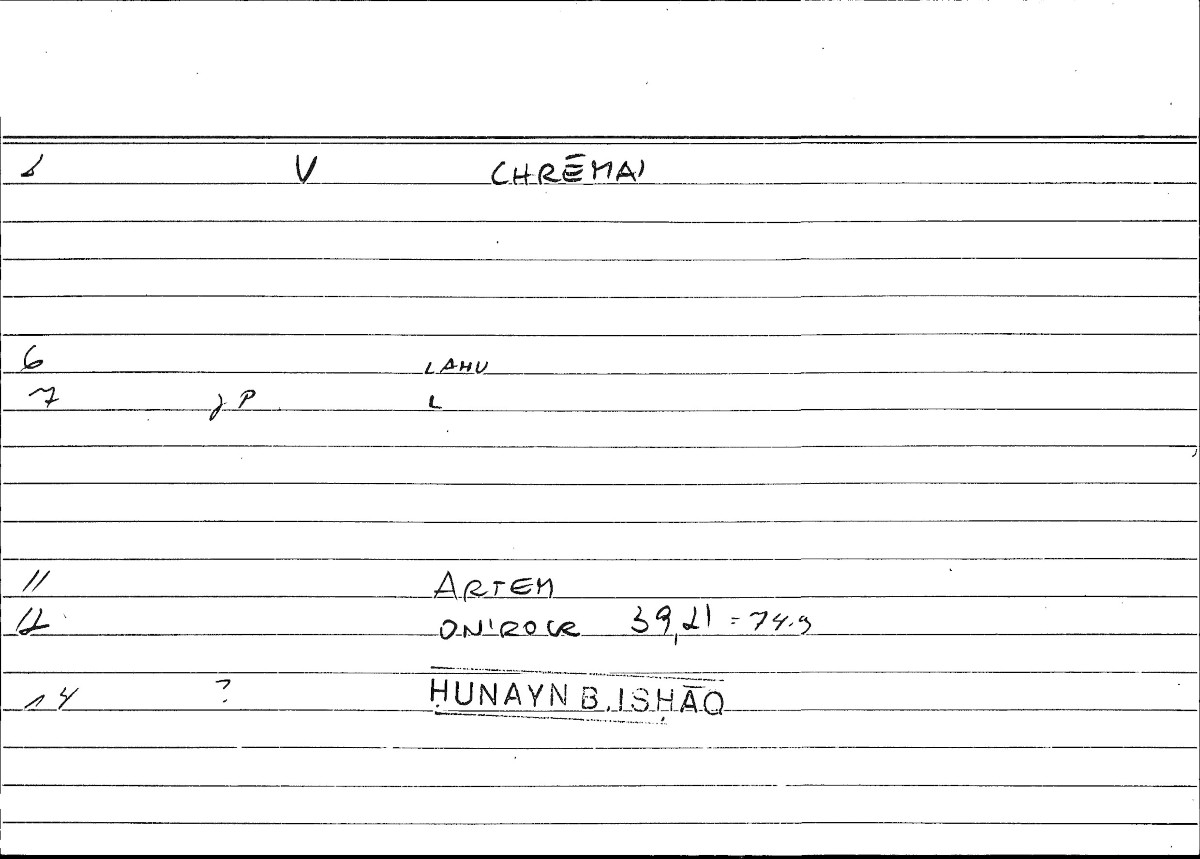 V CHRĒMAI
6 LAHU
7 P L
11 ARTEM
12 ONIROCR 39,21 = 74.9
14 ? ḤUNAYN B. ISḤĀQ